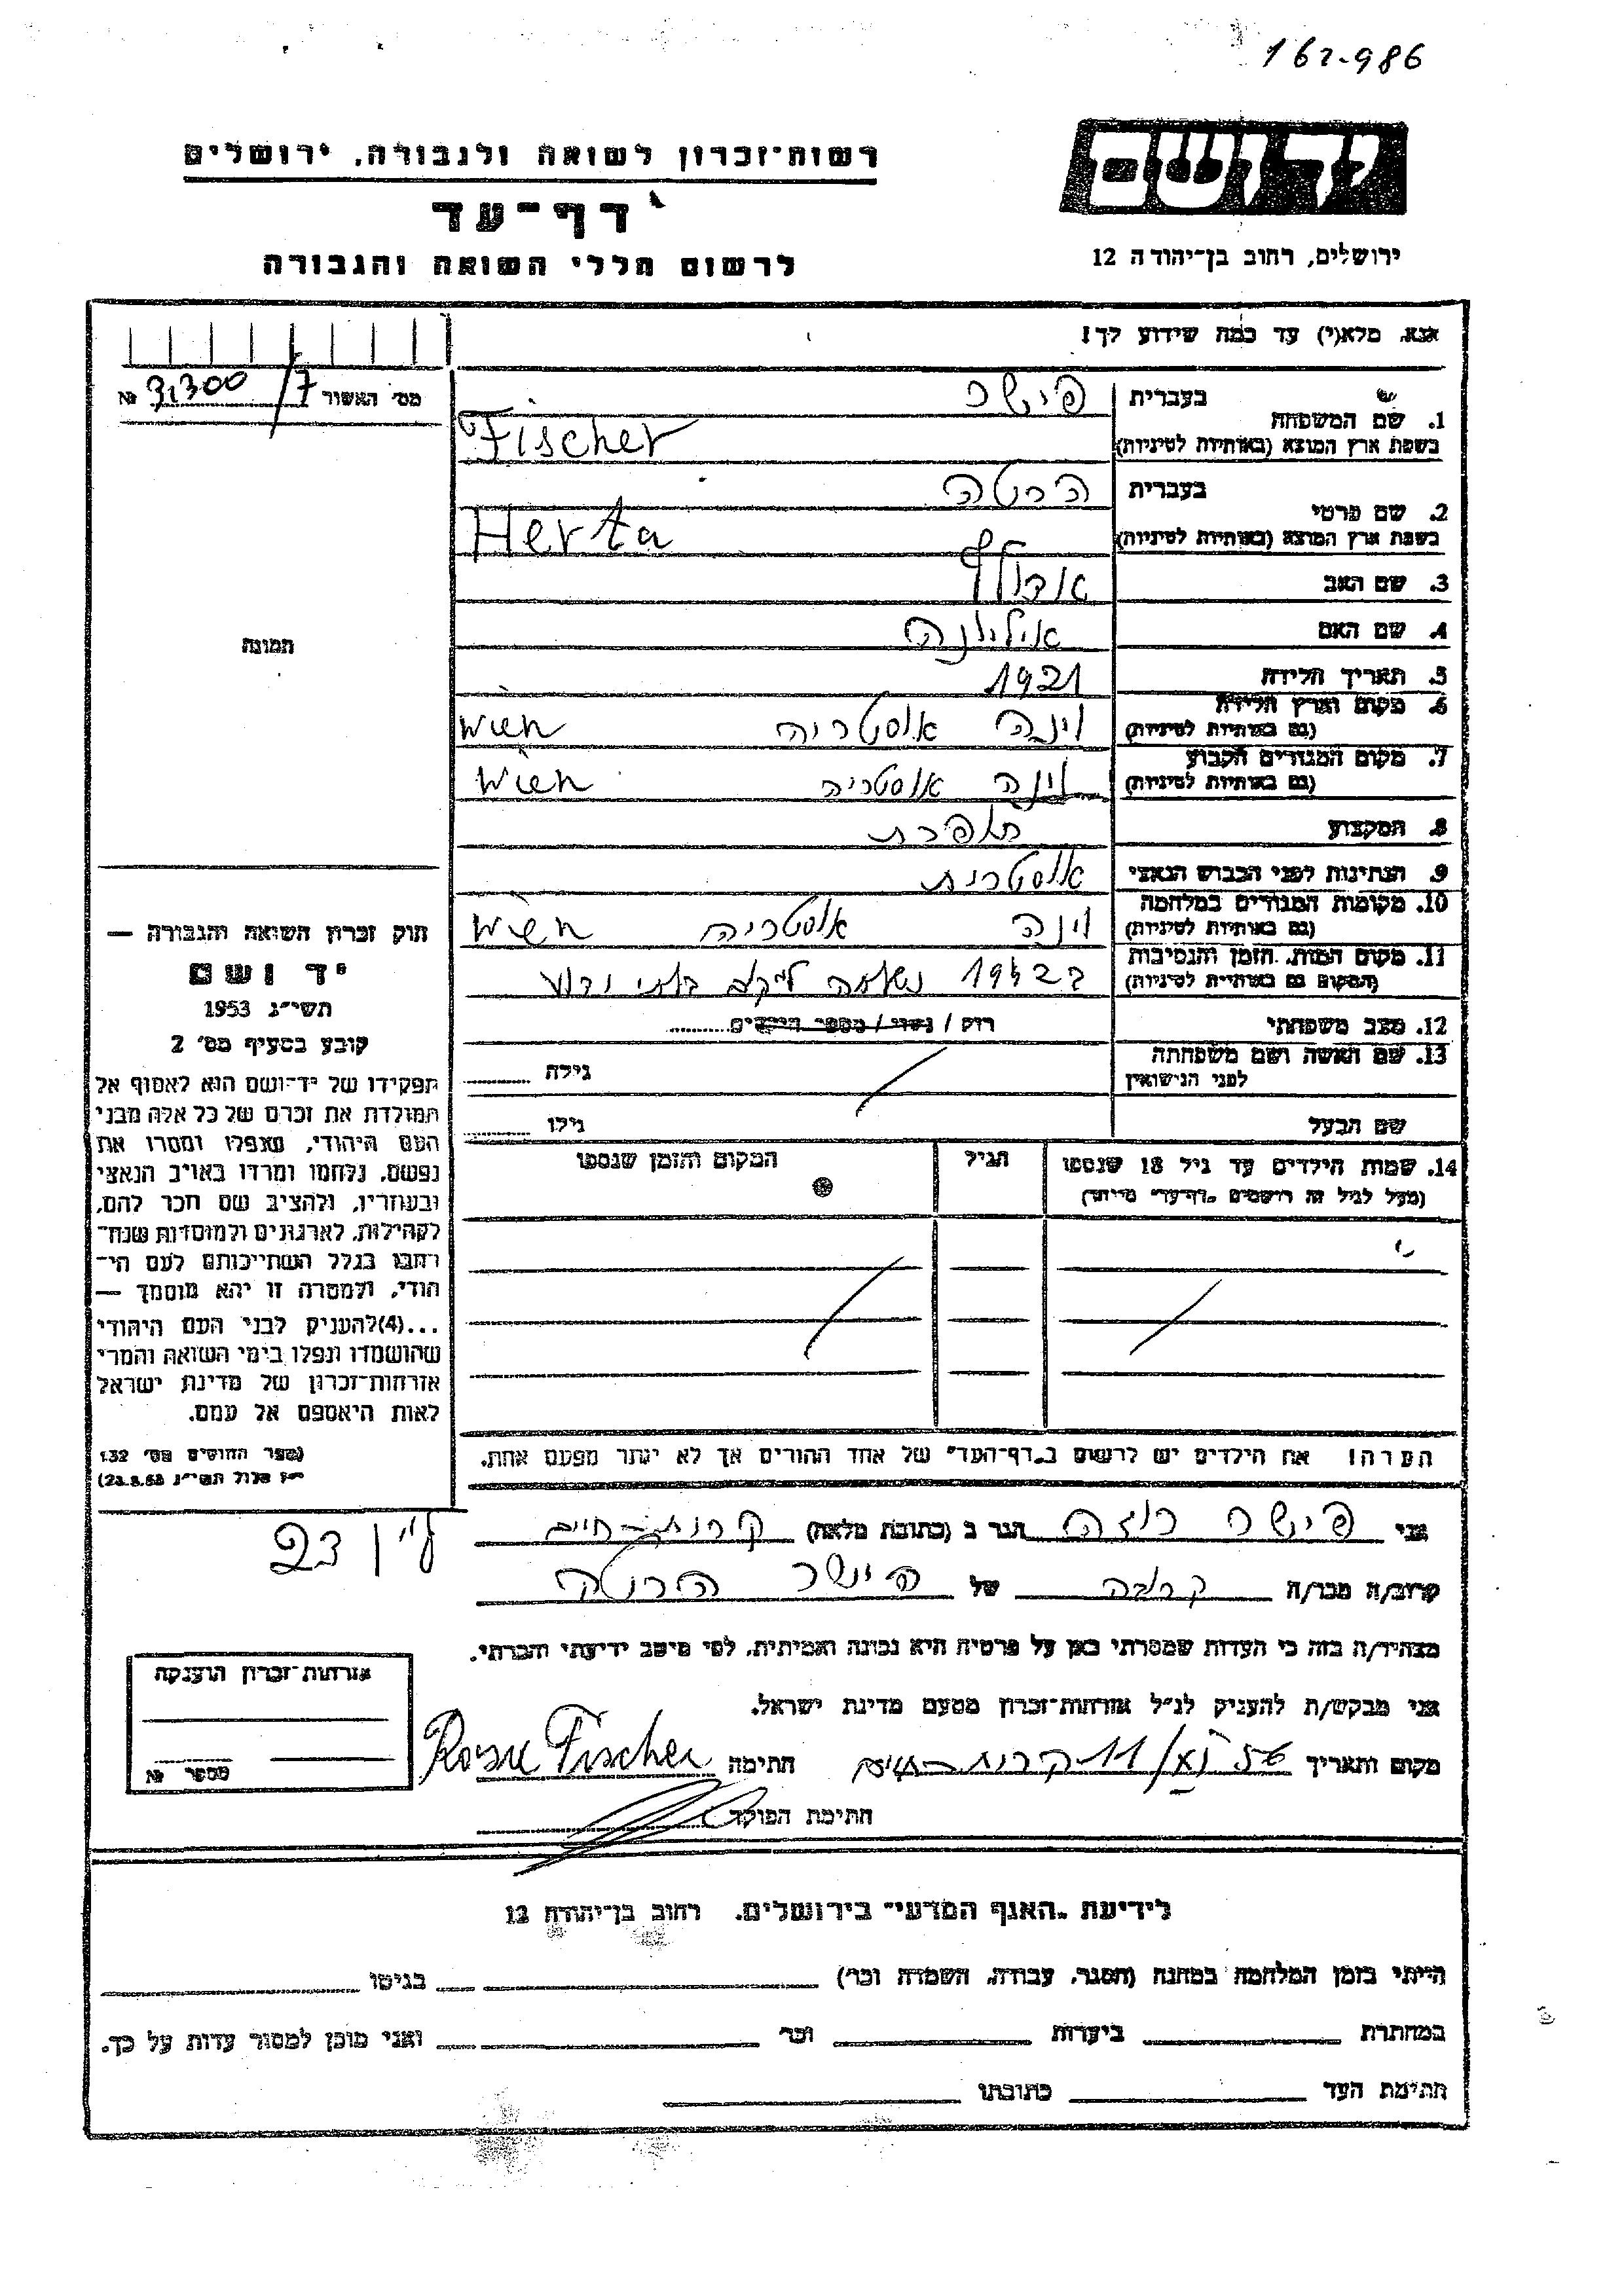 162-986
יד ושם
ירושלים, רחוב בן־יהודה 12
רשות־זכרון לשואה ולגבורה, ירושלים
דף־עד
לרשום חללי השואה והגבורה
אנא, מלא(י) עד כמה שידוע לך!
1. שם המשפחה בעברית פישר
בשפת ארץ המוצא (באותיות לטיניות) Fischer
2. שם פרטי בעברית הרטה
בשפת ארץ המוצא (באותיות לטיניות) Herta
3. שם האב אדולף
4. שם האם
5. תאריך הלידה 1921
6. מקום וארץ הלידה וינה אוסטריה Wien
(גם באותיות לטיניות)
7. מקום המגורים הקבוע וינה אוסטריה Wien
(גם באותיות לטיניות)
8. המקצוע תופרת
9. הנתינות לפני הכבוש הנאצי אוסטרית
10. מקומות המגורים במלחמה וינה אוסטריה Wien
(גם באותיות לטיניות)
11. מקום המות, הזמן והנסיבות ב 1942 נשלחה
(המקום גם באותיות לטיניות)
12. מצב משפחתי רווק / נשוי / מספר הילדים
13. שם האשה ושם משפחתה
לפני הנישואין גילה
שם הבעל גילו
14. שמות הילדים עד גיל 18 שנספו הגיל המקום והזמן שנספו
(מעל לגיל זה רושמים "דף־עד" מיוחד)
הערה! את הילדים יש לרשום ב"דף־העד" של אחד ההורים אך לא יותר מפעם אחת.
מס׳ האשור 7/ 31300 №
תמונה
חוק זכרון השואה והגבורה —
יד ושם
תשי״ג 1953
קובע בסעיף מס׳ 2
תפקידו של יד־ושם הוא לאסוף אל
המולדת את זכרם של כל אלה מבני
העם היהודי, שנפלו ומסרו את
נפשם, נלחמו ומרדו באויב הנאצי
ובעוזריו, ולהציב שם וזכר להם,
לקהילות, לארגונים ולמוסדות שנח־
רבו בגלל השתייכותם לעם הי־
הודי, ולמטרה זו יהא מוסמך —
...(4)להעניק לבני העם היהודי
שהושמדו ונפלו בימי השואה והמרי
אזרחות־זכרון של מדינת ישראל
לאות היאספם אל עמם.
(ספר החוקים מס׳ 132
י״ז אלול תשי״ג 28.8.53)
אני פישר רוזה הגר ב (כתובת מלאה) קרית־חיים
23
קרוב/ה מכר/ה קרובה של פישר הרטה
מצהיר/ה בזה כי העדות שמסרתי כאן על פרטיה היא נכונה ואמיתית, לפי מיטב ידיעתי והכרתי.
אני מבקש/ת להעניק לנ״ל אזרחות־זכרון מטעם מדינת ישראל.
מקום ותאריך קרית־חיים 11/ 56 חתימה Rosu Fischer
חתימת הפוקד
אזרחות־זכרון הוענקה
מספר №
לידיעת "האגף המדעי" בירושלים, רחוב בן־יהודה 12
הייתי בזמן המלחמה במחנה (הסגר, עבודה, השמדה וכו׳) בגיטו
במחתרת ביערות וכו׳ ואני מוכן למסור עדות על כך.
חתימת העד כתובתו